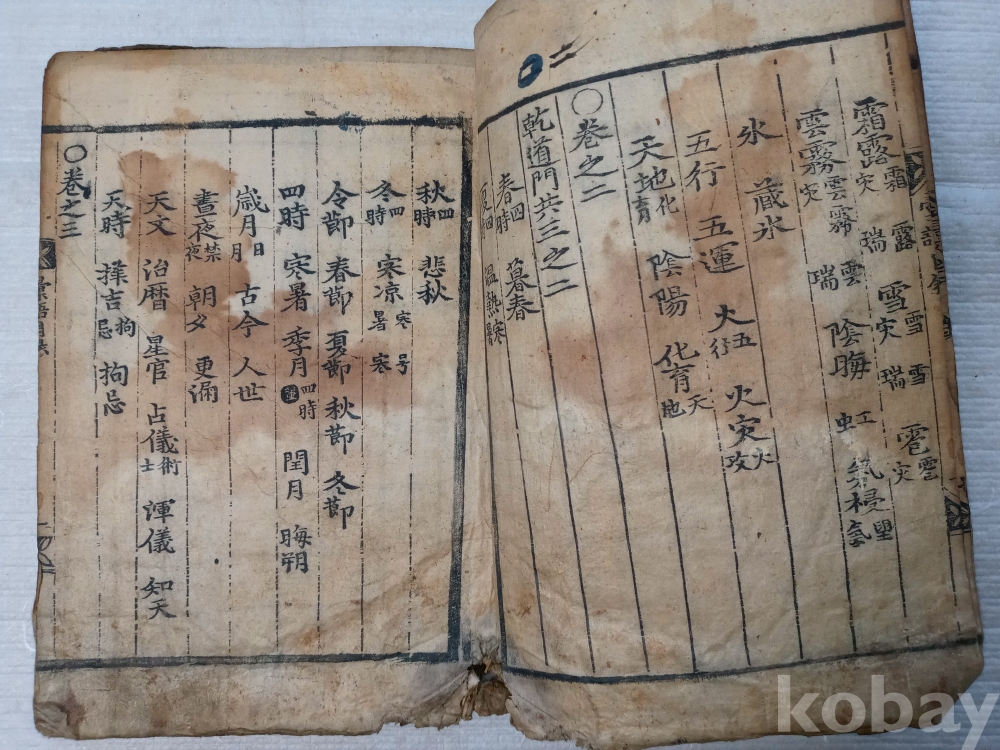 霜露 霜災 露瑞 雪 雪災 雪瑞 雹 雹災
雲霧 雲霧災 雲瑞 陰晦 虹 氛祲
氷 藏氷
五行 五運 火五行 火災 火攻
天地化育 陰陽 化育天地
○卷之二
乾道門共三之二
春四時 暮春
夏四時 溫熱寒暑
二
秋四時 悲秋
冬四時 寒凉寒暑 寒号
令節 春節 夏節 秋節 冬節
四時 寒暑 季月四時 閏月 晦朔
歲月日月 古今 人世
晝夜禁夜 朝夕 更漏
天文 治曆 星官 占儀術士 渾儀 知天
天時 擇吉拘忌 拘忌
○卷之三
kobay